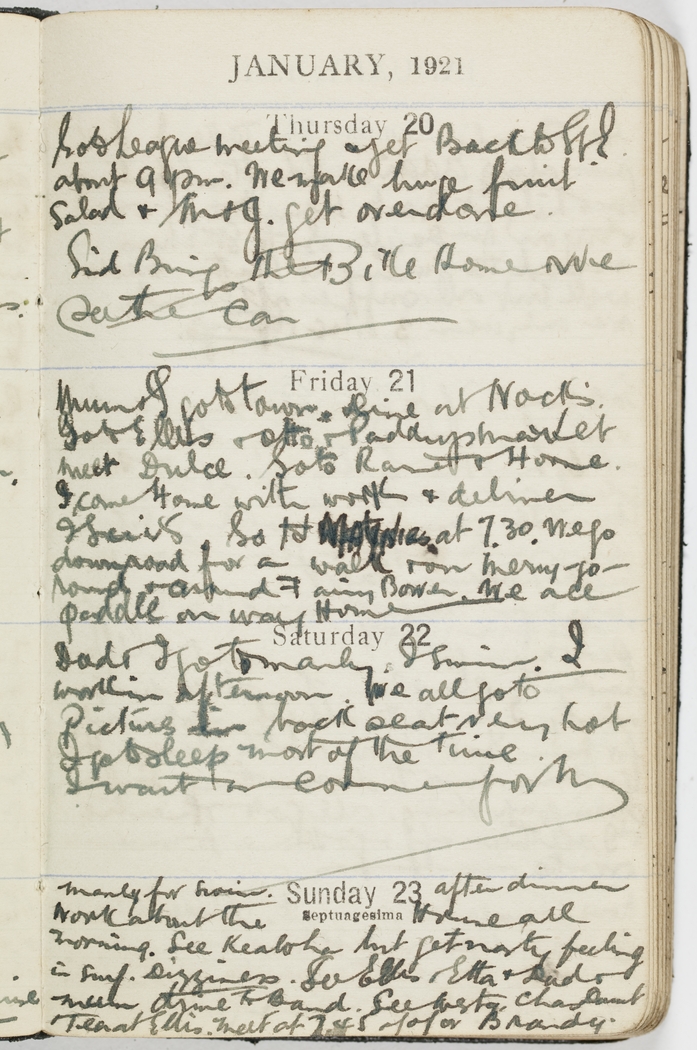 JANUARY, 1921
Thursday 20
Go to League meeting & get Back to
about 9 pm. We make huge fruit
Salad & get overdone.
Sid Brings the Bike Home & we
see the Car
Friday 21
Mum & I go to town & dine at Nocks.
Go to Ellis & & Paddys market
meet Dulce. Go to & Home.
I come Home with work & deliver
Go to at 7.30. We go
down road for a walk & on merry-go-
round & around Fairy Bower. We all
paddle on way Home
Saturday 22
Dad & I go to manly. I swim. I
work in afternoon. We all go to
Pictures in back seat very hot
I go to sleep most of the time
I wait on corner for
Sunday 23
Septuagesima
manly for swim. after dinner
Work about the House all
morning. See but get nasty feeling
in surf. Dizziness. Go Ellis & Etta & Dad &
mum drive to Band. See Chas
Tea at Ellis. Meet at 7.45 go for Brandy.